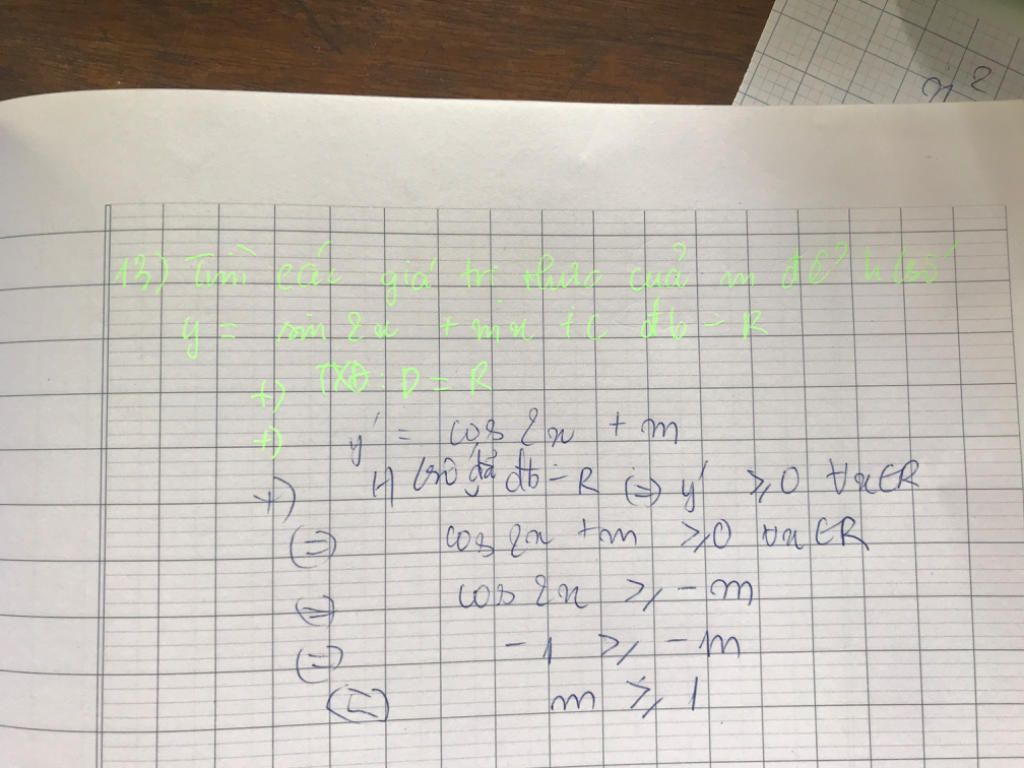 x²
13) Tìm các giá trị thực của m để h/số
y = sin 2x + mx + c đb - R
+) TXĐ: D = R
+) y' = cos 2x + m
+) H/số đã đb - R (=) y' ≥ 0 ∀x∈R
(=) cos 2x + m ≥ 0 ∀x∈R
(=) cos 2x ≥ -m
(=) -1 ≥ -m
(=) m ≥ 1